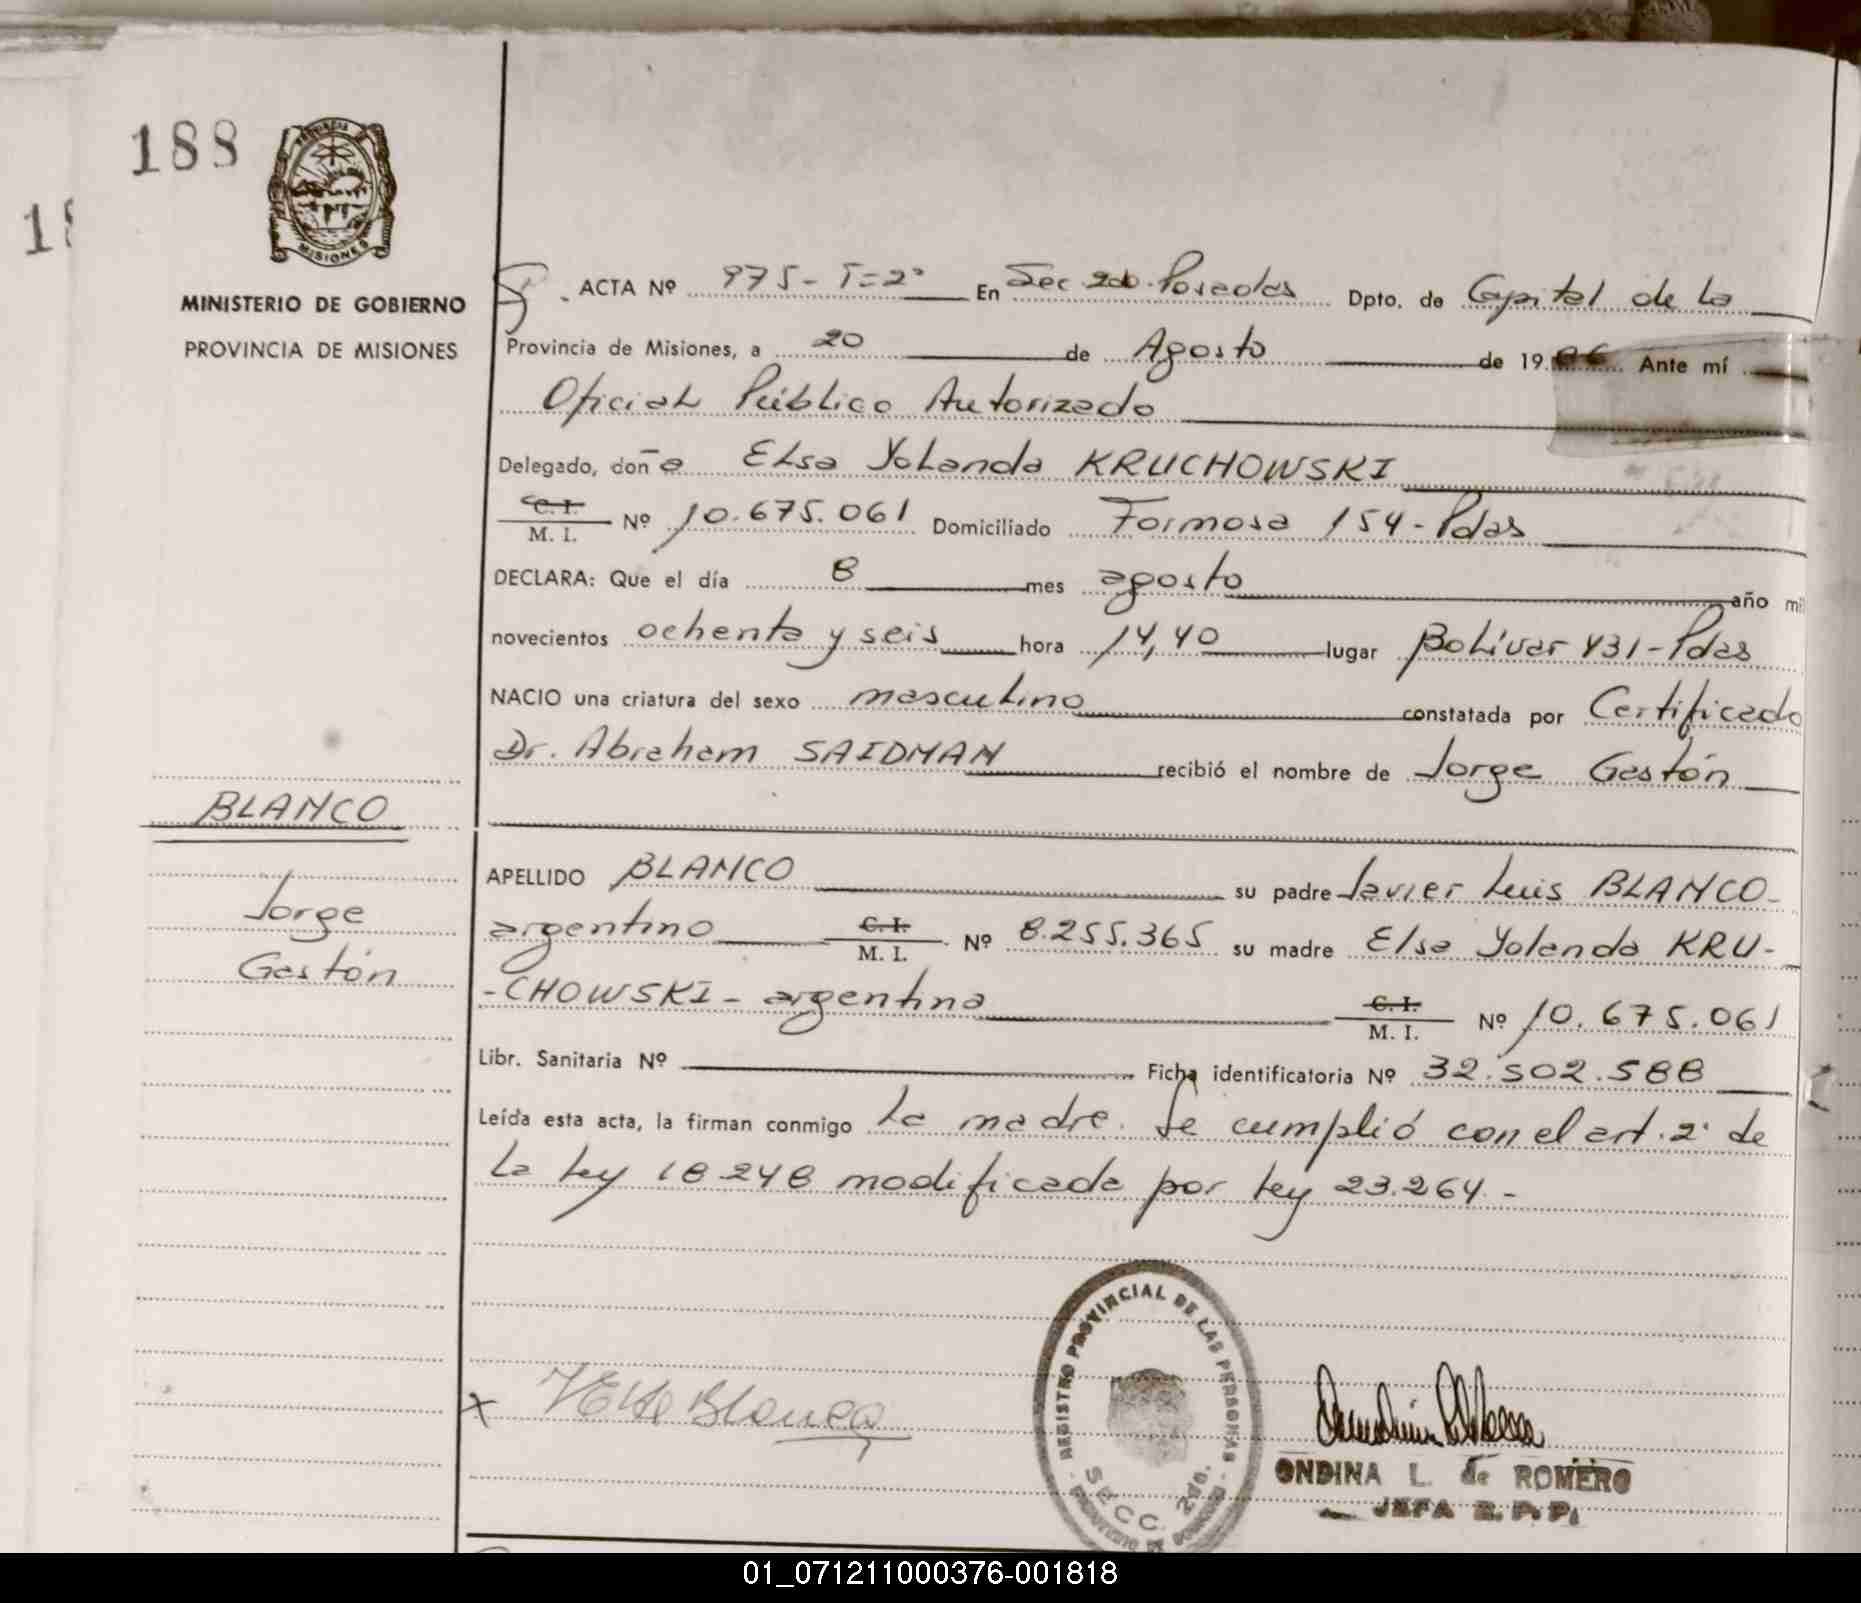 188
PROVINCIA
MISIONES
MINISTERIO DE GOBIERNO
PROVINCIA DE MISIONES
ACTA Nº 975 - T=2º En Sec. 2da. Posadas Dpto. de Capital de la
Provincia de Misiones, a 20 de Agosto de 1986 Ante mí
Oficial Público Autorizado
Delegado, doña Elsa Yolanda KRUCHOWSKI
C. I.
M. I. Nº 10.675.061 Domiciliado Formosa 154 - Pdas
DECLARA: Que el día 8 mes agosto año mi
novecientos ochenta y seis hora 14,40 lugar Bolívar 431 - Pdas
NACIO una criatura del sexo masculino constatada por Certificado
Dr. Abraham SAIDMAN recibió el nombre de Jorge Gastón
BLANCO
Jorge
Gastón
APELLIDO BLANCO su padre Javier Luis BLANCO -
argentino C. I. M. I. Nº 8.255.365 su madre Elsa Yolanda KRU-
-CHOWSKI - argentina C. I. M. I. Nº 10.675.061
Libr. Sanitaria Nº Ficha identificatoria Nº 32.502.588
Leída esta acta, la firman conmigo la madre. Se cumplió con el art. 2º de
la ley 18.248 modificada por ley 23.264.-
x Blanco
REGISTRO PROVINCIAL DE LAS PERSONAS
SECC. 2da.
ONDINA L. de ROMERO
JEFA R. P. P.
01_071211000376-001818